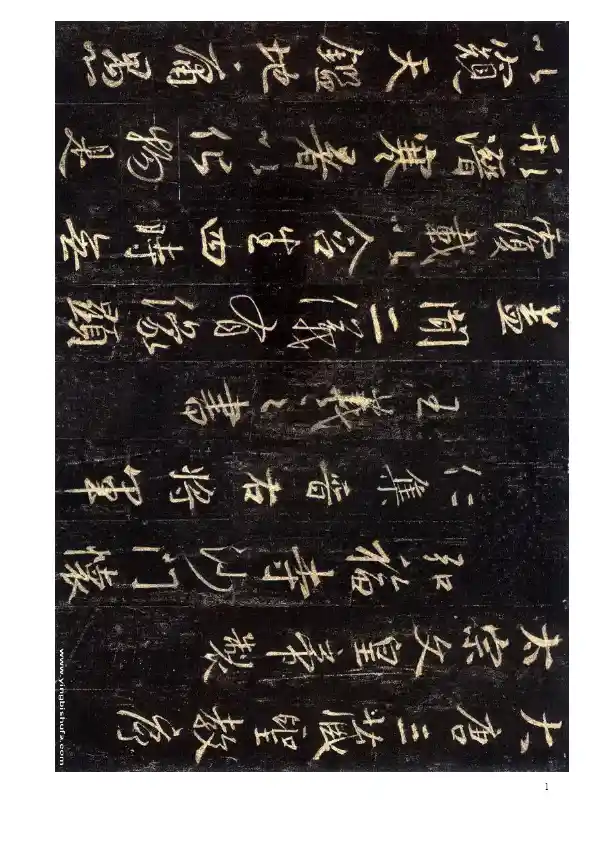 大唐三藏聖教序
太宗文皇帝製
弘福寺沙門懷
仁集晉右將軍
王羲之書
蓋聞二儀有像顯
覆載以含生四時無
形潛寒暑以化物是
以窺天鑑地庸愚
www.yingbishufa.com
1